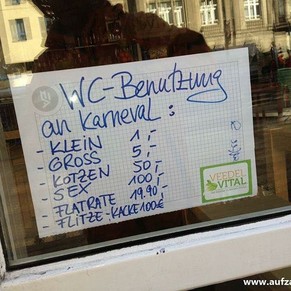 WC-Benutzung
an Karneval :
- KLEIN 1,-
- GROSS 5,-
- KOTZEN 50,-
- SEX 100,-
- FLATRATE 19.90,-
- FLITZE-KACKE 100€
VEEDEL
VITAL
www.aufza